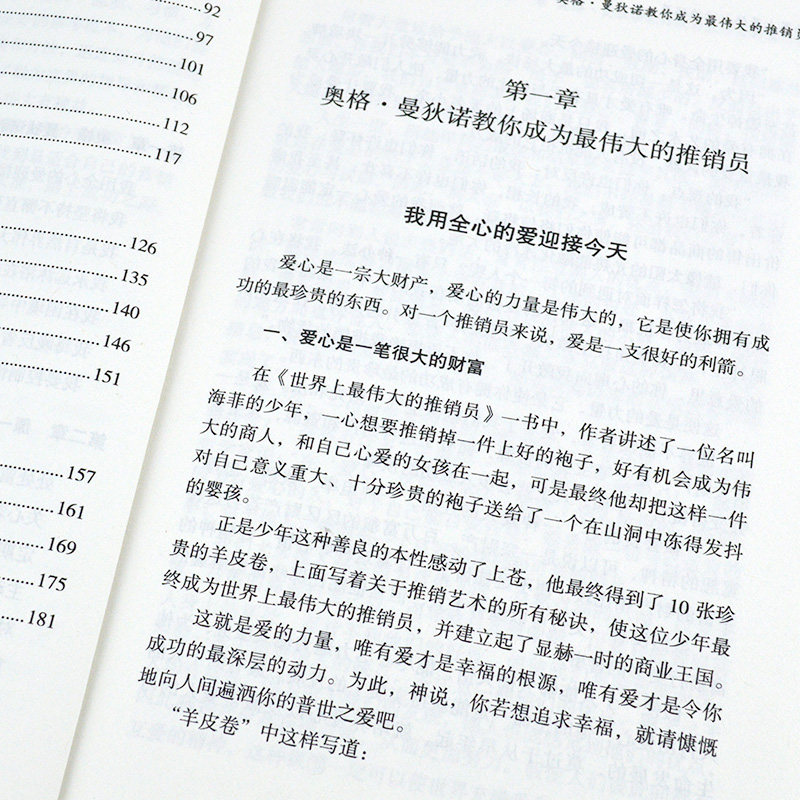 92
97
101
106
112
117
126
135
140
146
151
157
161
169
175
181
奥格·曼狄诺教你成为最伟大的推销员
第一章
奥格·曼狄诺教你成为最伟大的推销员
我用全心的爱迎接今天
爱心是一宗大财产，爱心的力量是伟大的，它是使你拥有成
功的最珍贵的东西。对一个推销员来说，爱是一支很好的利箭。
一、爱心是一笔很大的财富
在《世界上最伟大的推销员》一书中，作者讲述了一位名叫
海菲的少年，一心想要推销掉一件上好的袍子，好有机会成为伟
大的商人，和自己心爱的女孩在一起，可是最终他却把这样一件
对自己意义重大、十分珍贵的袍子送给了一个在山洞中冻得发抖
的婴孩。
正是少年这种善良的本性感动了上苍，他最终得到了10张珍
贵的羊皮卷，上面写着关于推销艺术的所有秘诀，使这位少年最
终成为世界上最伟大的推销员，并建立起了显赫一时的商业王国。
这就是爱的力量，唯有爱才是幸福的根源，唯有爱才是令你
成功的最深层的动力。为此，神说，你若想追求幸福，就请慷慨
地向人间遍洒你的普世之爱吧。
“羊皮卷”中这样写道：